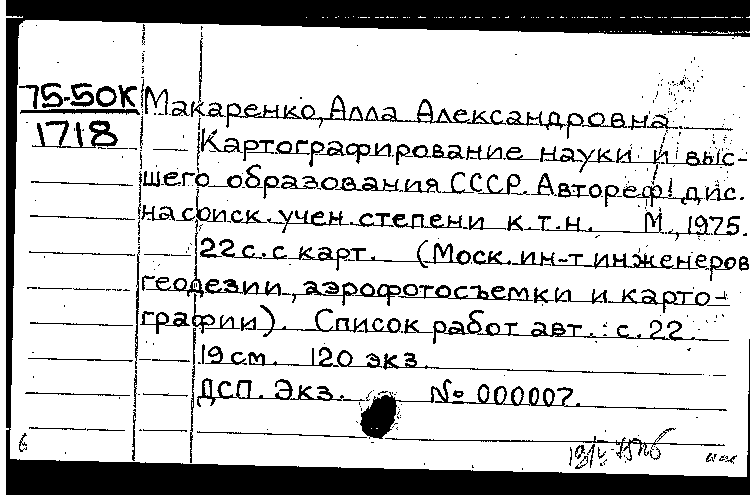 75-50К Макаренко, Алла Александровна.
1718 Картографирование науки и выс-
шего образования СССР. Автореф. дис.
на соиск. учен. степени к.т.н. М., 1975.
22 с. с карт. (Моск. ин-т инженеров
геодезии, аэрофотосъемки и карто-
графии). Список работ авт.: с. 22.
19 см. 120 экз.
ДСП. Экз. № 000007.
6